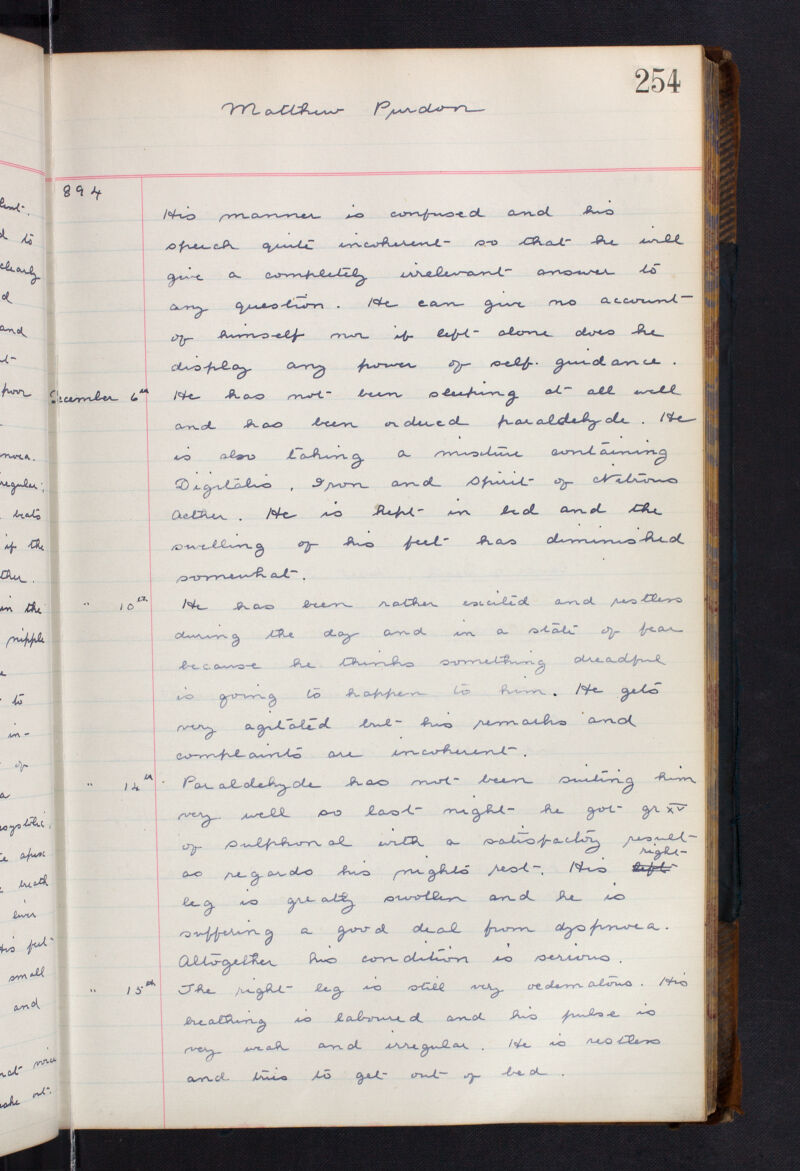 254
Matthew Purdon
894
His manner is confused and his
speech quite incoherent so that he will
give a completely irrelevant answer to
any question. He can give no account
of himself nor if left alone does he
display any power of self-guidance.
December 6th He has not been sleeping at all well
and has been ordered paraldehyde. He
is also taking a mixture containing
Digitalis, Iron and Spirit of Nitrous
Aether. He is kept in bed and the
swelling of his feet has diminished
somewhat.
" 10th He has been rather excited and restless
during the day and in a state of fear
because he thinks something dreadful
is going to happen to him. He gets
very agitated but his remarks and
complaints are incoherent.
" 14th Paraldehyde has not been suiting him
very well so last night he got gr XV
of sulphonal with a satisfactory result
as regards his night's rest. His left right
leg is greatly swollen and he is
suffering a good deal from dyspnoea.
Altogether his condition is serious.
" 15th The right leg is still very oedematous. His
breathing is laboured and his pulse is
very weak and irregular. He is restless
and tries to get out of bed.
to
clearly
d
and
poor
regular;
beats
if the
in the
nipple
to
in-
of
a
breath
liver
His feet
small
and